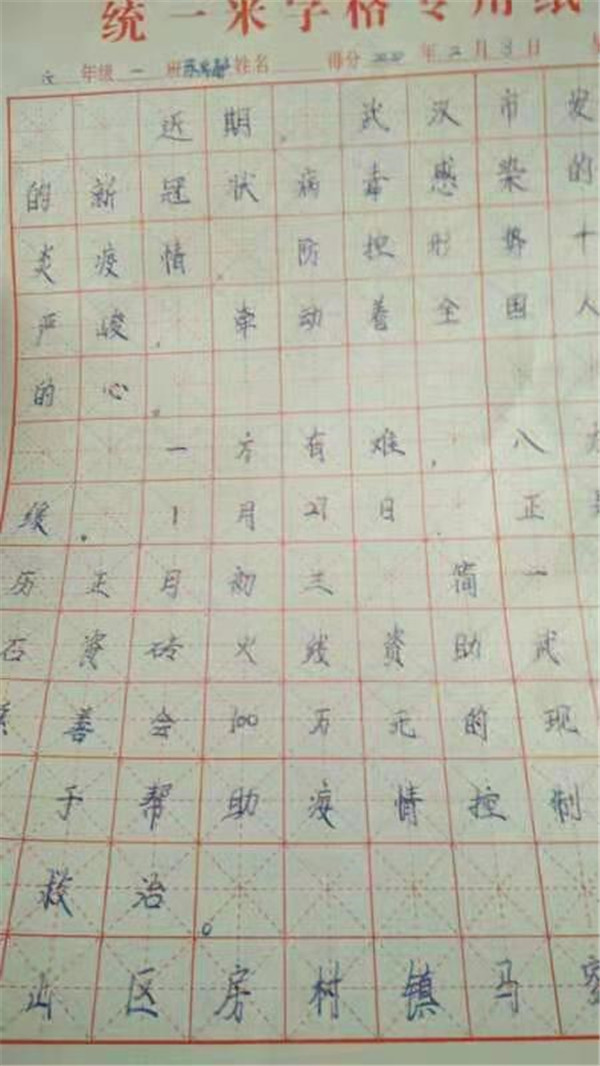 统一米字格专用纸
年级一班 姓名 得分 2020年2月8日
近期,武汉市发
的新冠状病毒感染的
炎疫情 防控形势十
严峻,牵动着全国人
的心。
一方有难,八方
缓。1月27日,正是
历正月初三 简一
石瓷砖火线资助武
善会100万元的现
于帮助疫情控制
救治。
山区房村镇马